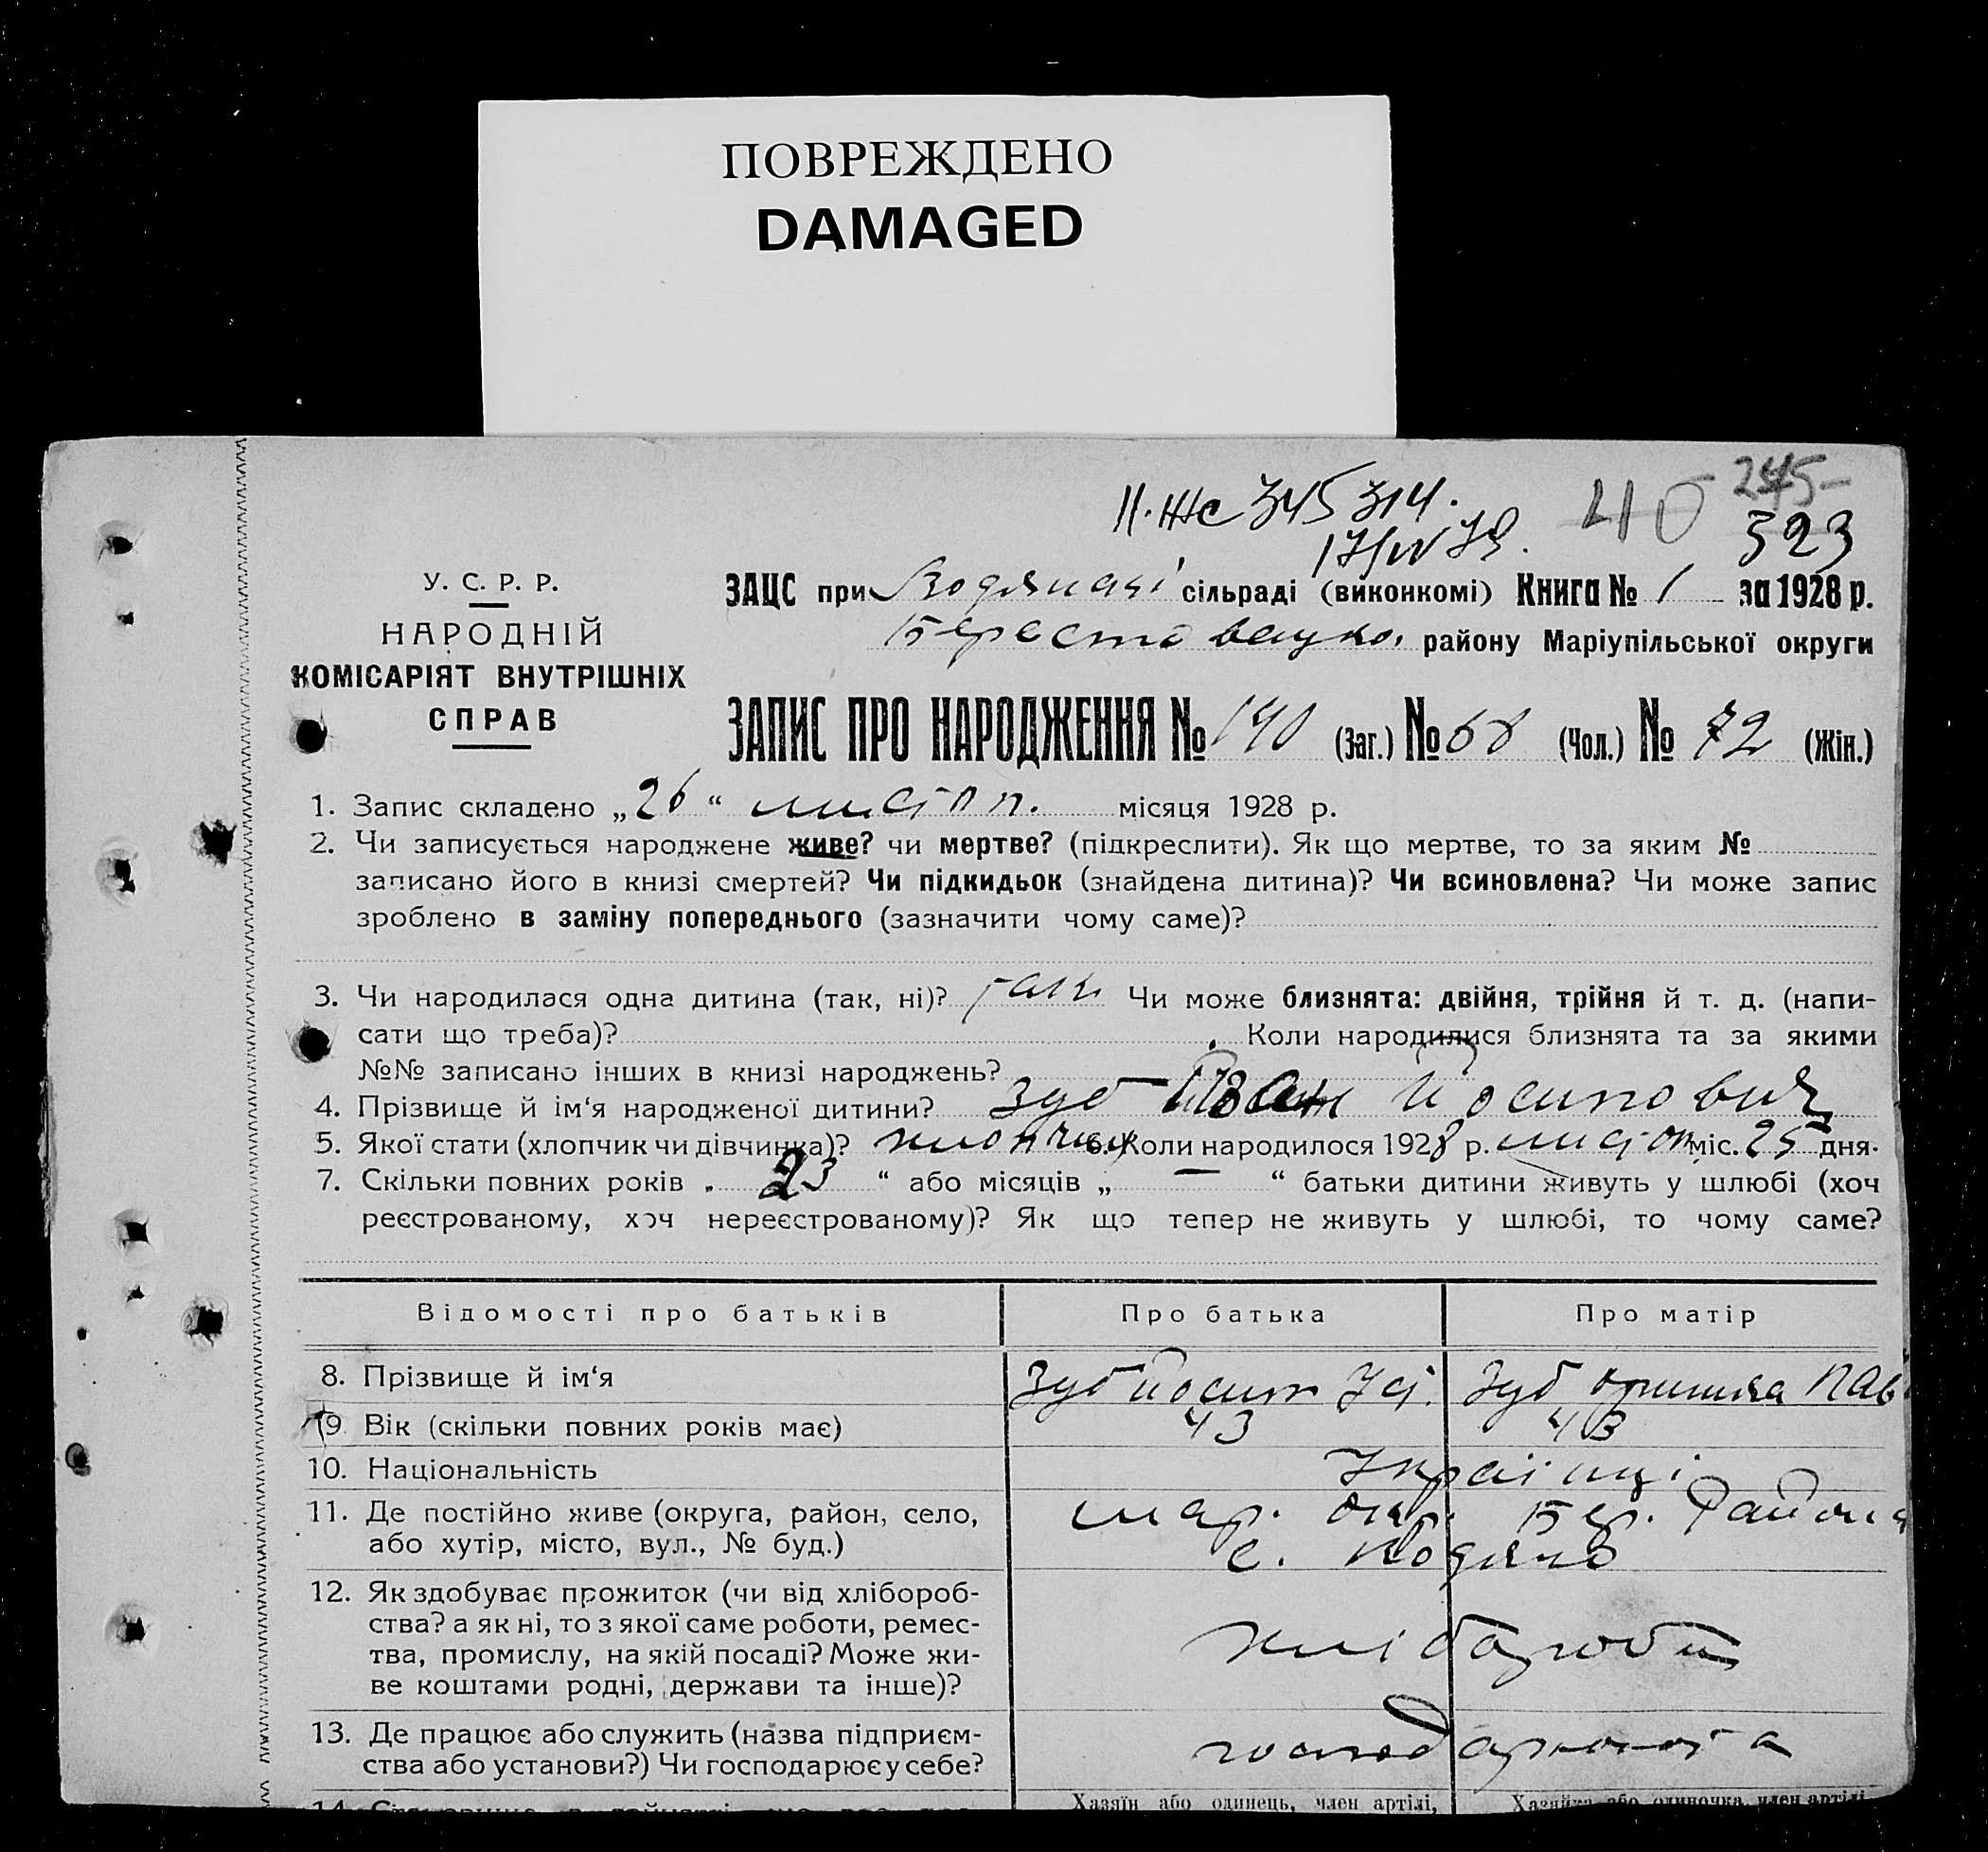 ПОВРЕЖДЕНО
DAMAGED
245-
40
323
II.ЖС 345314.
17/IV 79.
У. С. Р. Р.
НАРОДНІЙ
КОМІСАРІЯТ ВНУТРІШНІХ
СПРАВ
ЗАЦС при Водянській сільраді (виконкомі) Книга № 1 за 1928 р.
району Маріупільської округи
ЗАПИС ПРО НАРОДЖЕННЯ № 140 (Заг.) № 68 (Чол.) № 72 (Жін.)
1. Запис складено „26“ листоп. місяця 1928 р.
2. Чи записується народжене живе? чи мертве? (підкреслити). Як що мертве, то за яким №
записано його в книзі смертей? Чи підкидьок (знайдена дитина)? Чи всиновлена? Чи може запис
зроблено в заміну попереднього (зазначити чому саме)?
3. Чи народилася одна дитина (так, ні)? так Чи може близнята: двійня, трійня й т. д. (напи-
сати що треба)? Коли народилися близнята та за якими
№№ записано інших в книзі народжень?
4. Прізвище й ім‘я народженої дитини? Зуб Іван Йосипович
5. Якої стати (хлопчик чи дівчинка)? хлопчик 6. Коли народилося 1928 р. листоп міс. 25 дня.
7. Скільки повних років „ 23 “ або місяців „ — “ батьки дитини живуть у шлюбі (хоч
реєстрованому, хоч нереєстрованому)? Як що тепер не живуть у шлюбі, то чому саме?
Відомості про батьків Про батька Про матір
8. Прізвище й ім‘я Зуб Йосип Зуб Оришка Пав
9. Вік (скільки повних років має) 43 43
10. Національність Українці
11. Де постійно живе (округа, район, село, мар. окр. Бер. Району
або хутір, місто, вул., № буд.) с. Водяно
12. Як здобуває прожиток (чи від хлібороб-
ства? а як ні, то з якої саме роботи, ремес-
тва, промислу, на якій посаді? Може жи-
ве коштами родні, держави та інше)?
13. Де працює або служить (назва підприєм-
ства або установи?) Чи господарює у себе?
14.
Хазяїн або одинець, член артілі, Хазяйка або одиночка, член артілі